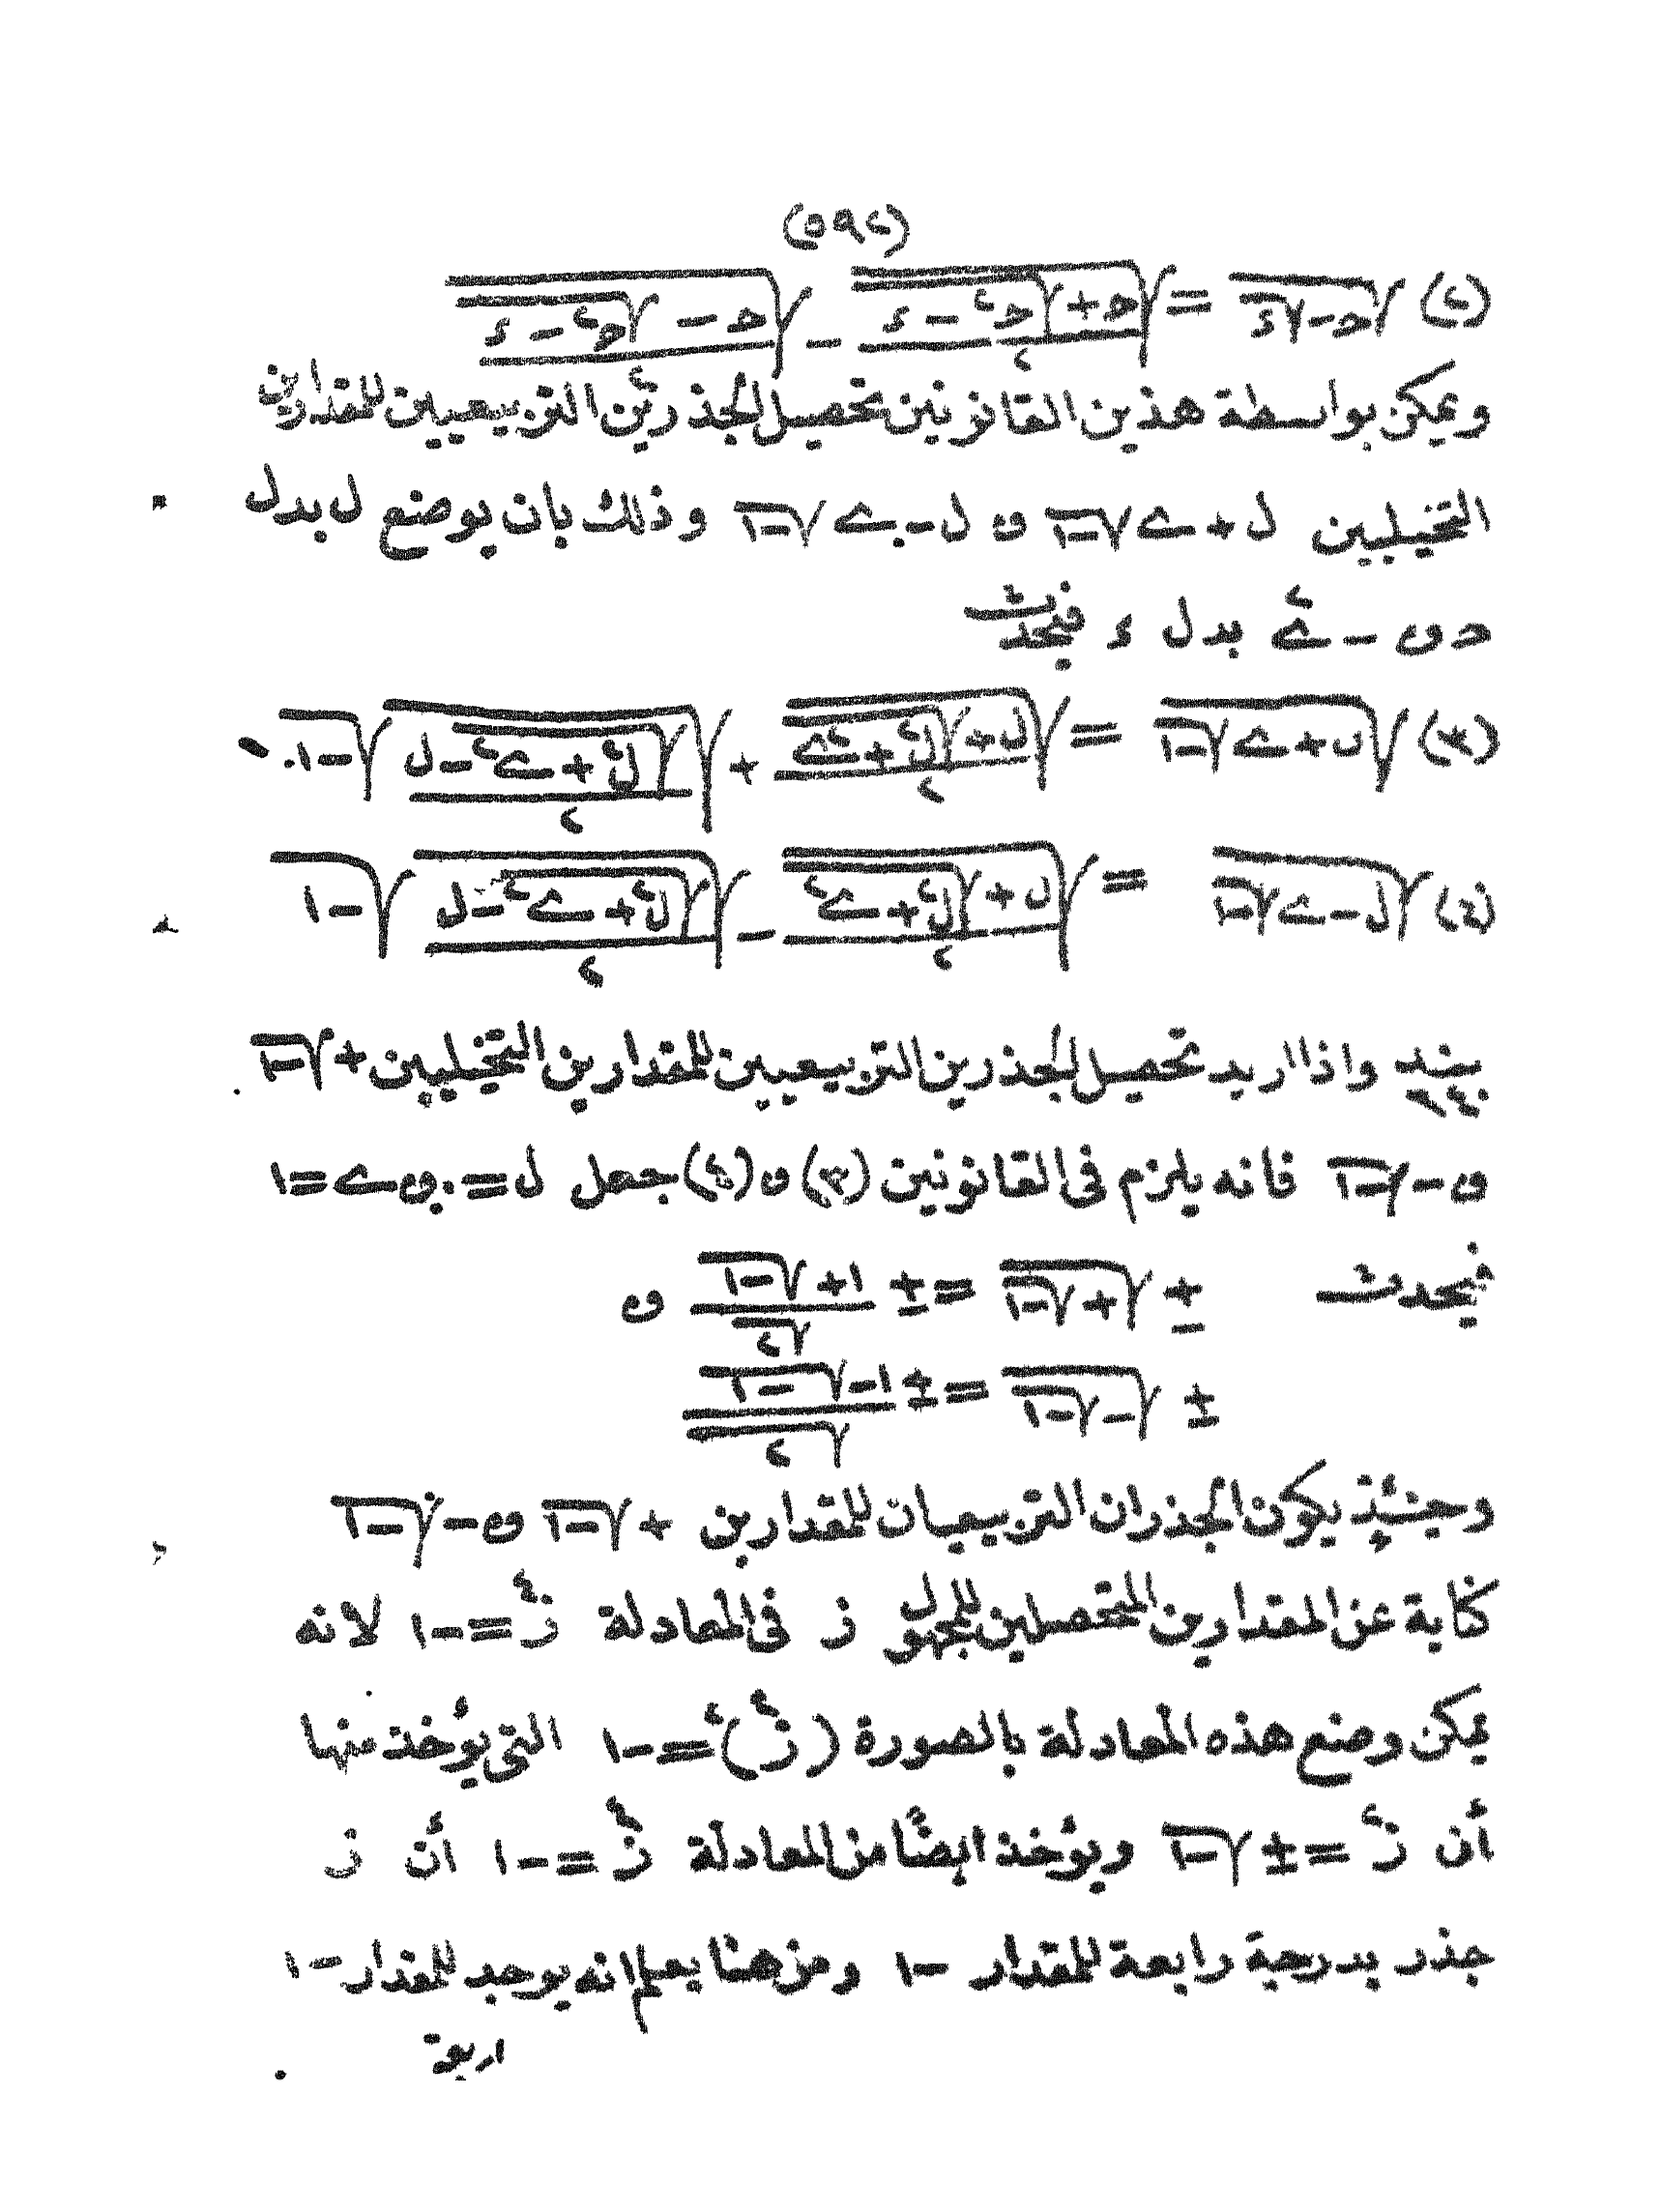 (٥٩٢)
(٢) √(ح-√د) = √((ح+√(ح٢-د))/٢) - √((ح-√(ح٢-د))/٢)
ويمكن بواسطة هذين القانونين تحصيل الجذرين التربيعيين للمقدارين
التخيليين ل+ے√-١ و ل-ے√-١ وذلك بان يوضع ل بدل
ح و -ے٢ بدل د فيحدث
(٣) √(ل+ے√-١) = √((ل+√(ل٢+ے٢))/٢) + √((√(ل٢+ے٢)-ل)/٢) √-١.
(٤) √(ل-ے√-١) = √((ل+√(ل٢+ے٢))/٢) - √((√(ل٢+ے٢)-ل)/٢) √-١
واذا اريد تحصيل الجذرين التربيعيين للمقدارين التخيليين +√-١
و-√-١ فانه يلزم فى القانونين (٣) و(٤) جعل ل=٠ وے=١
فيحدث ± √(+√-١) =± (١+√-١)/√٢ و
± √(-√-١) =± (١-√-١)/√٢
وحينئذ يكون الجذران التربيعيان للمقدارين +√-١ و-√-١
كناية عن المقدارين المتحصلين للمجهول ز فى المعادلة ز٤=-١ لانه
يمكن وضع هذه المعادلة بالصورة (ز٢)٢=-١ التى يؤخذ منها
أن ز٢=±√-١ ويؤخذ ايضًا من المعادلة ز٤=-١ أن ز
جذر بدرجة رابعة للمقدار -١ ومن هنا يعلم انه يوجد للمقدار -١
اربعة